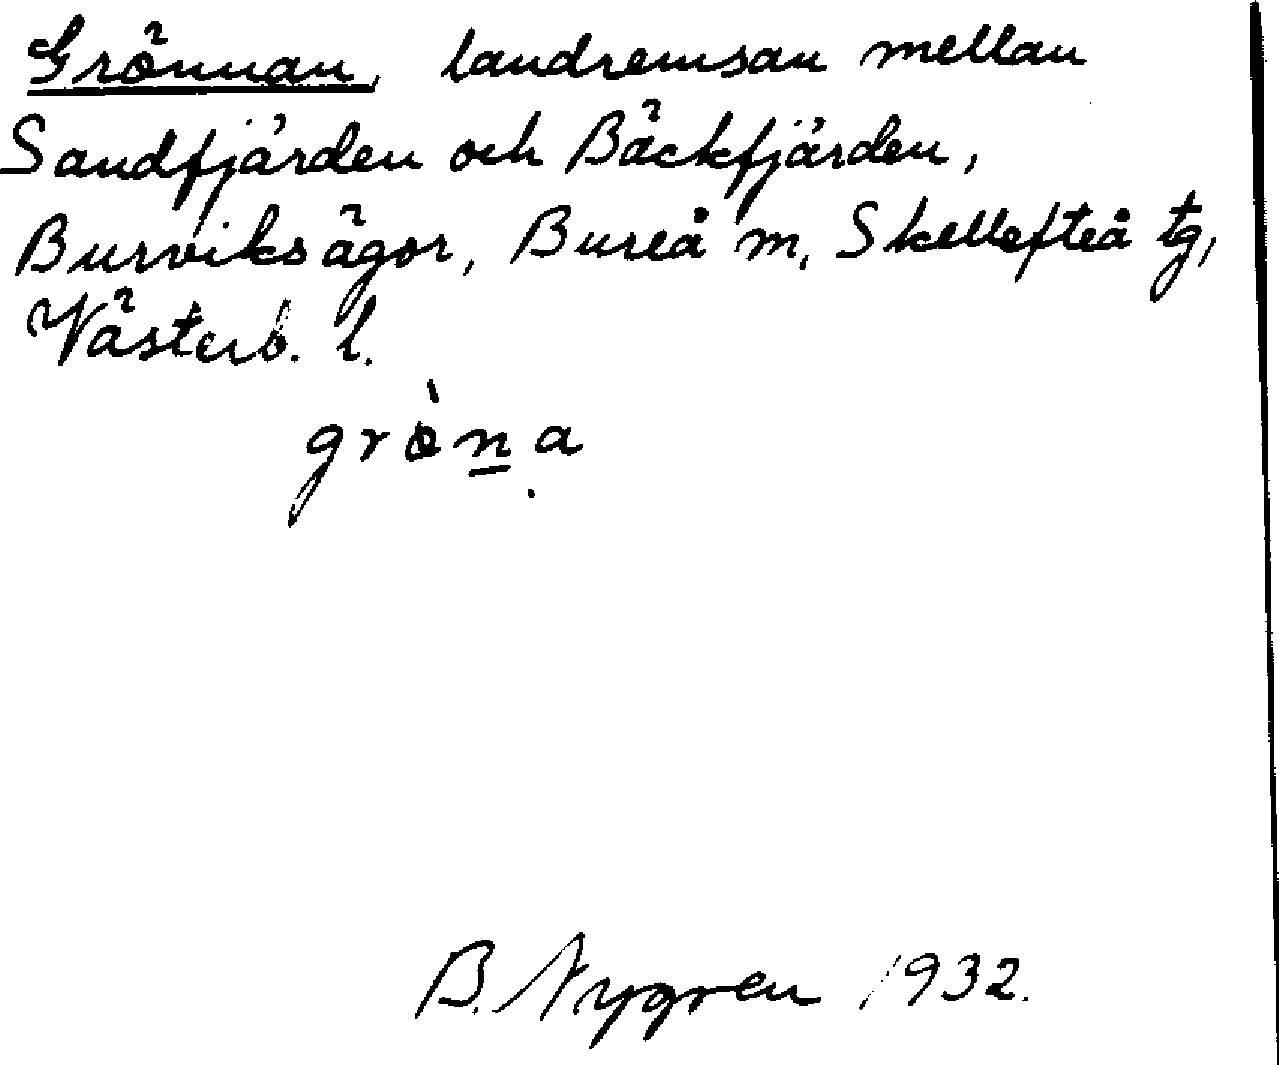 Grönnan, landremsan mellan
Sandfjärden och Bäckfjärden,
Burviks ägor, Bureå m, Skellefteå tg,
Västerb. l.
grò̀n̲a
B. Nygren 1932.